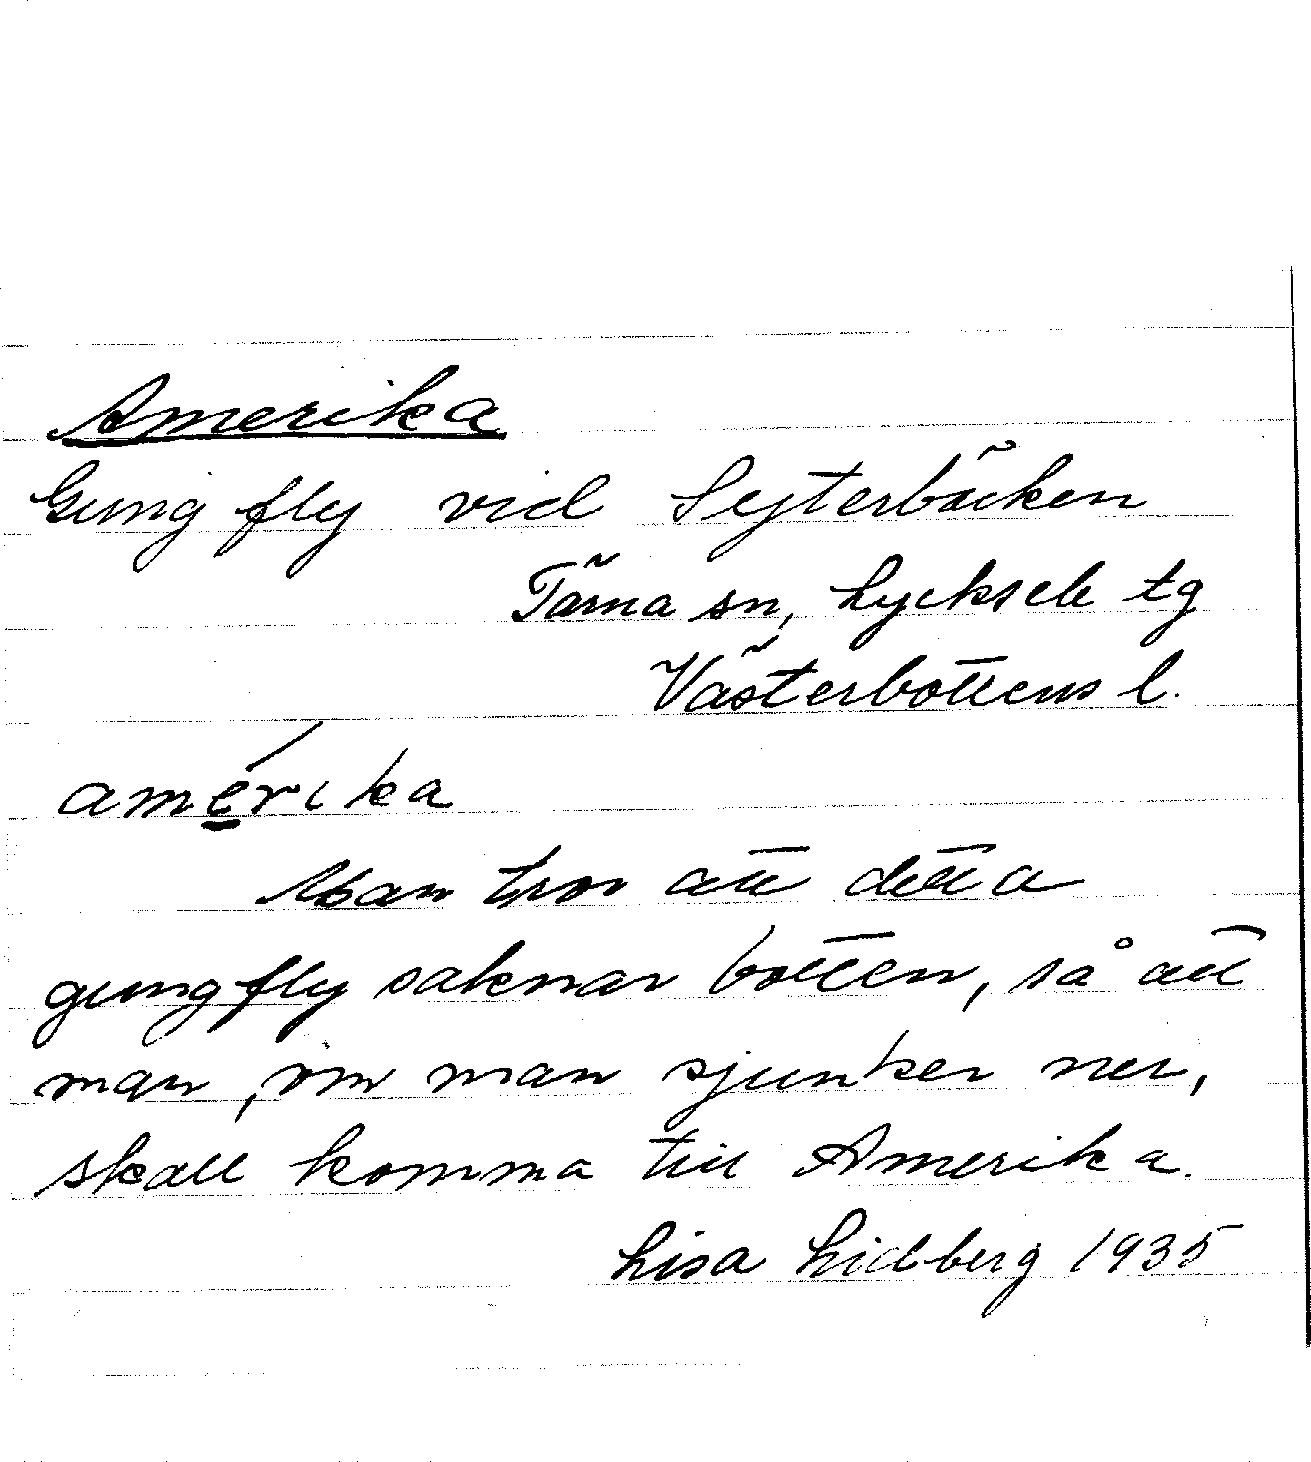 Amerika
Gungfly vid Sejterbäcken
Tärna sn, Lycksele tg
Västerbottens l.
amérika
Man tror att detta
gungfly saknar botten, så att
man, om man sjunker ner,
skall komma till Amerika.
Lisa Lidberg 1935